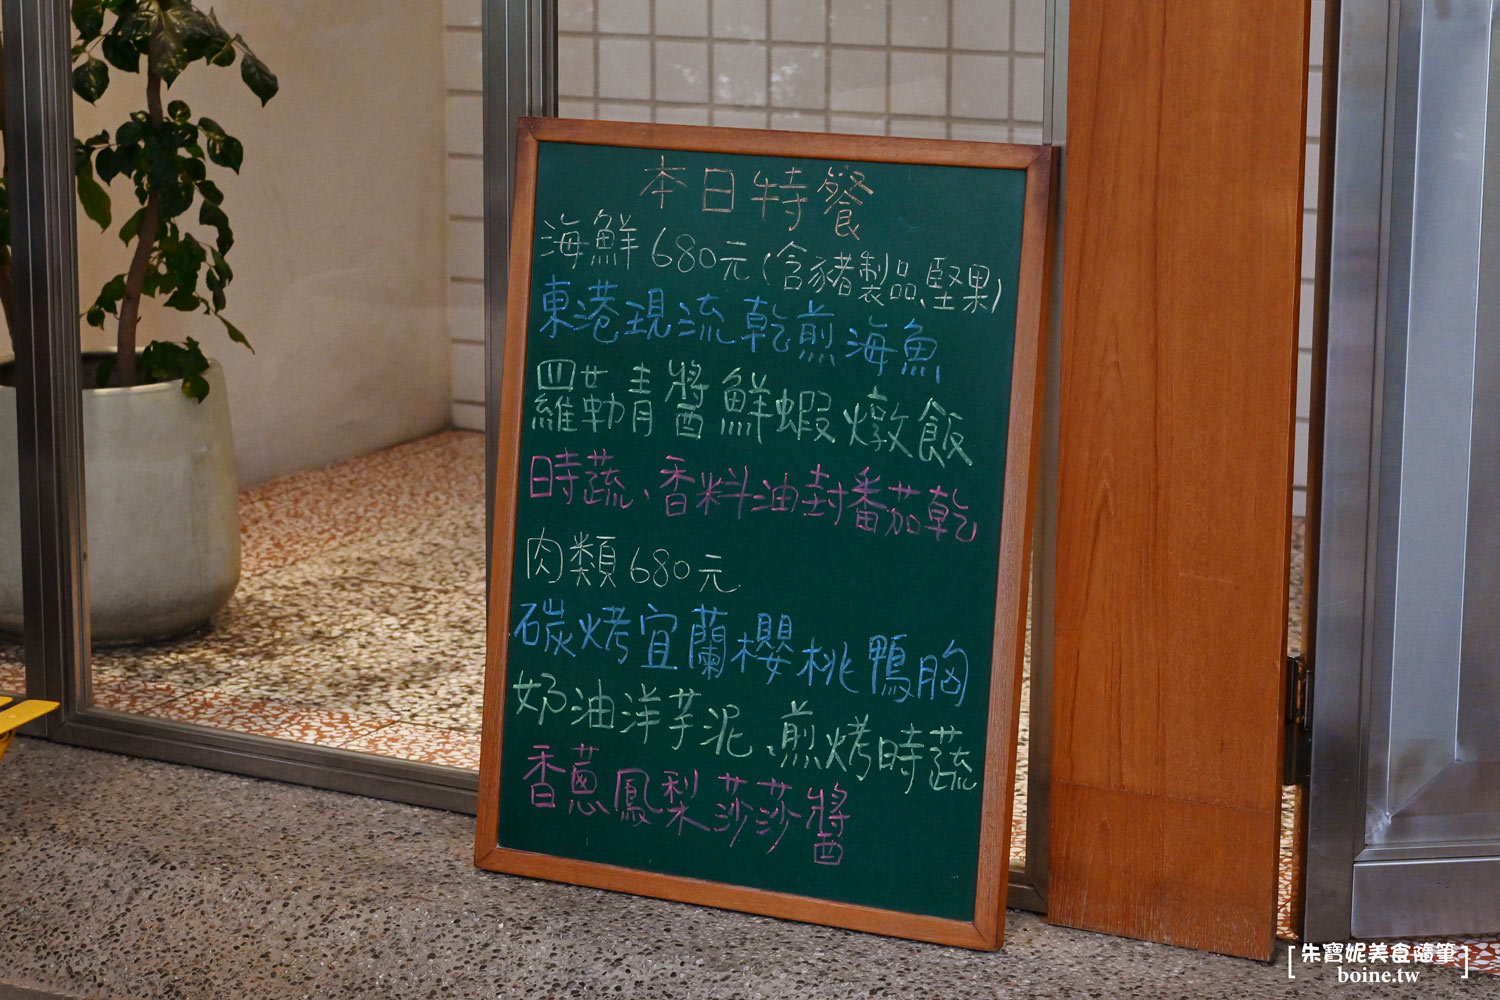 本日特餐
海鮮680元(含豬製品、堅果)
東港現流乾煎海魚
羅勒青醬鮮蝦燉飯
時蔬、香料油封番茄乾
肉類680元
碳烤宜蘭櫻桃鴨胸
奶油洋芋泥、煎烤時蔬
香蔥鳳梨莎莎醬
[朱寶妮美食隨筆]
boine.tw